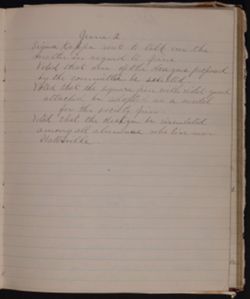 June 2
Sigma Kappa met to talk over the
matter in regard to pins.
Voted that one of the designs proposed
by the committee be selected.
Voted that the square pin with
attached be adopted as a model
for the society pin.
Voted that the design be circulated
among all alumnae who live near
Waterville.